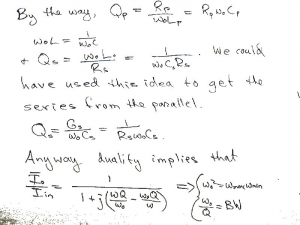 By the way, Qp = Rp/ω₀Lp = Rpω₀Cp
ω₀L = 1/ω₀C
& Qs = ω₀Ls/Rs = 1/ω₀CsRs. We could
have used this idea to get the
series from the parallel.
Qs = Gs/ω₀Cs = 1/Rsω₀Cs.
Anyway duality implies that
Io/Iin = 1/(1 + j(ωQ/ω₀ - ω₀Q/ω)) => { ω₀² = ωmax ωmin
ω₀/Q = BW